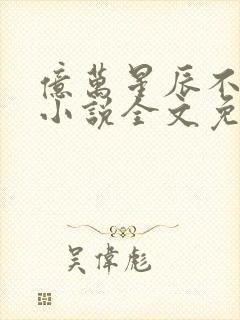 億萬星辰不
小說全文免
吳偉彪